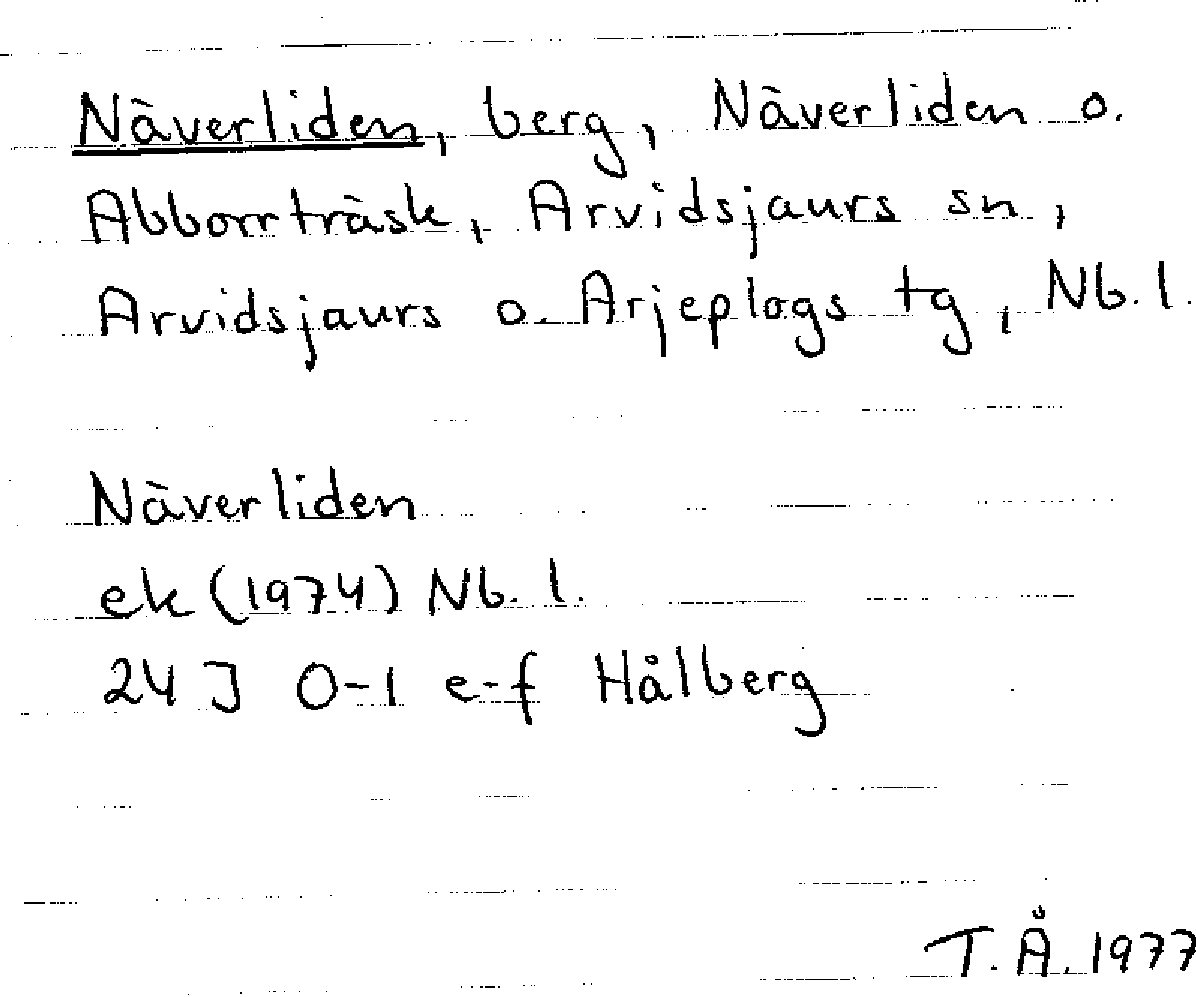 Näverliden, berg, Näverliden o.
Abborrträsk, Arvidsjaurs sn,
Arvidsjaurs o. Arjeplogs tg, Nb. l.
Näverliden
ek (1974) Nb. l.
24 J 0-1 e-f Hålberg
T. Å. 1977